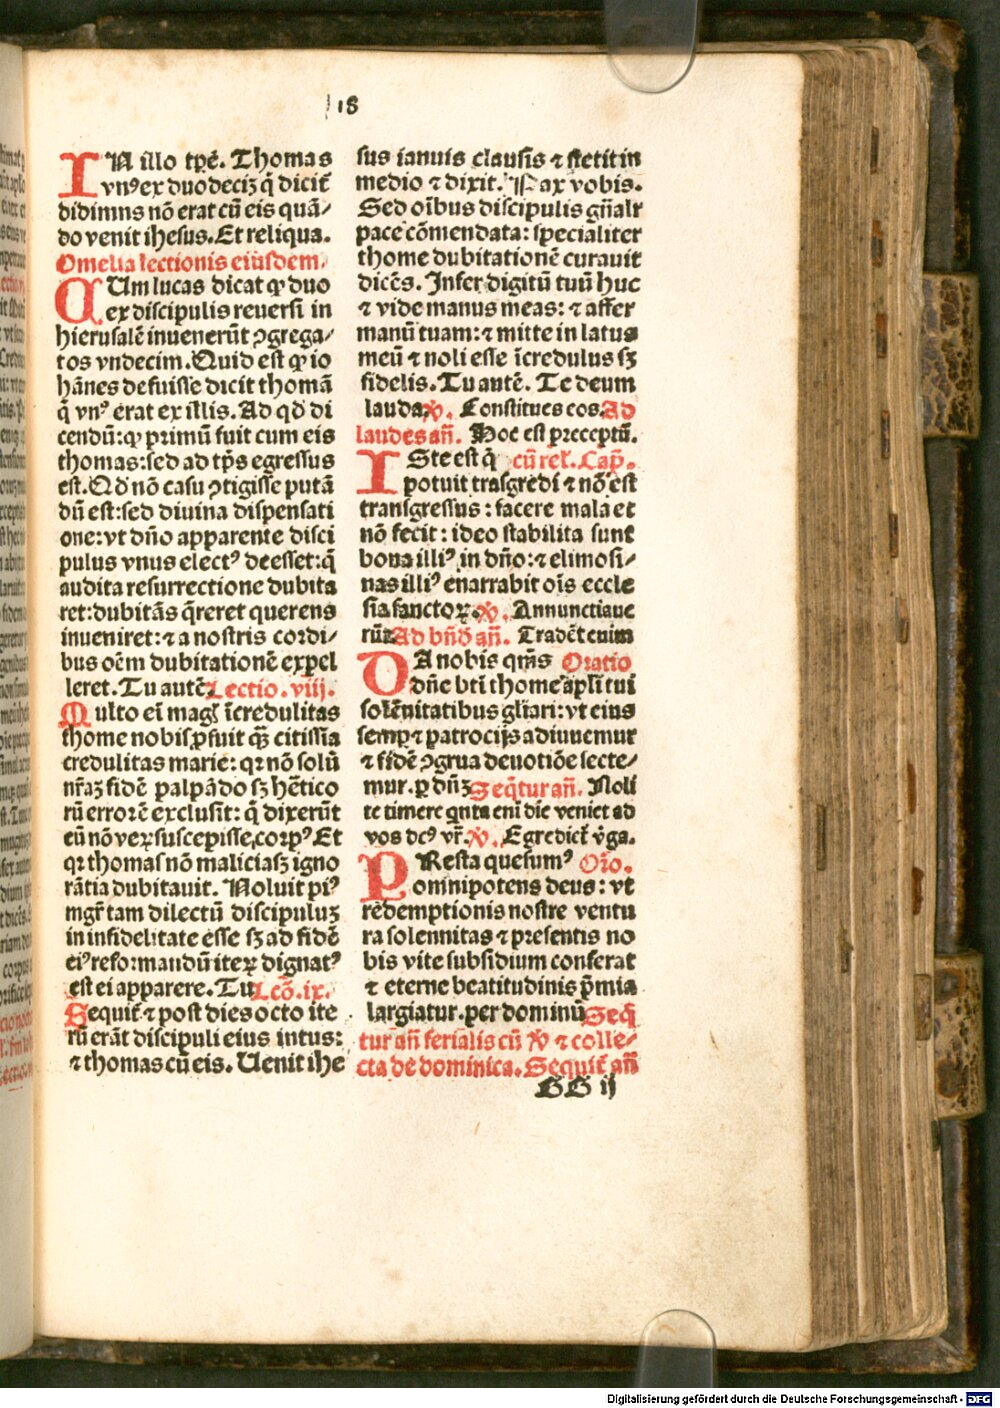 18
IN illo tp̄e. Thomas
vnꝰ ex duodeciꝫ q̄ dicit̄
didimns nō erat cū eis quā-
do venit ihesus. Et reliqua.
Omelia lectionis eiusdem.
CUm lucas dicat ꝙ duo
ex discipulis reuersi in
hierusalē inuenerūt ꝯgrega-
tos vndecim. Quid est ꝙ io
hānes defuisse dicit thomā
q̄ vnꝰ erat ex illis. Ad qd̄ di
cendū: ꝙ primū fuit cum eis
thomas: sed ad tp̄s egressus
est. Qd̄ nō casu ꝯtigisse putā
dū est: sed diuina dispensati
one: vt dn̄o apparente disci
pulus vnus electꝰ deesset: q̄
audita resurrectione dubita
ret: dubitās q̄reret querens
inueniret: ⁊ a nostris cordi-
bus oēm dubitationē expel
leret. Tu autē. Lectio. viij.
Multo eī magꝭ īcredulitas
thome nobis ꝓfuit qꝫ citissia
credulitas marie: qꝛ nō solū
nr̄aꝫ fidē palpādo sꝫ hētico
rū errorē exclusit: q̄ dixerūt
eū nō veꝝ suscepisse, corpꝰ Et
qꝛ thomas nō maliciasꝫ igno
rātia dubitauit. Noluit piꝰ
mgr̄ tam dilectū discipuluꝫ
in infidelitate esse sꝫ ad fidē
eiꝰ reformandū iteꝝ dignatꝰ
est ei apparere. Tu Lcō. ix.
Sequit̄ ⁊ post dies octo ite
rū erāt discipuli eius intus:
⁊ thomas cū eis. Uenit ihe
sus ianuis clausis ⁊ stetit in
medio ⁊ dixit. Pax vobis.
Sed oībus discipulis gn̄alr
pace cōmendata: specialiter
thome dubitationē curauit
dicēs. Infer digitū tuū huc
⁊ vide manus meas: ⁊ affer
manū tuam: ⁊ mitte in latus
meū ⁊ noli esse īcredulus sꝫ
fidelis. Tu autē. Te deum
lauda. ꝟ. Constitues eos. Ad
laudes an̄. Hoc est preceptū.
ISte est q̄ cū rel̄. Cap̄.
potuit trāsgredi ⁊ nō est
transgressus: facere mala et
nō fecit: ideo stabilita sunt
bona illiꝰ in dn̄o: ⁊ elimosi-
nas illiꝰ enarrabit oīs eccle
sia sanctoꝝ. ꝟ. Annunctiaue
rūt Ad bn̄d̄ an̄. Tradēt enim
DA nobis qm̄s Oratio
dn̄e bt̄i thome apl̄i tui
solēnitatibus gl̄iari: vt eius
semp̱ ⁊ patrocijs adiuuemur
⁊ fidē ꝯgrua deuotiōe secte-
mur. p̱ dn̄ꝫ Seq̄tur an̄. Noli
te timere qnta eni die veniet ad
vos dc̄ꝰ vr̄. ꝟ. Egrediet̄ v̄ga.
PResta quesumꝰ Or̄o.
omnipotens deus: vt
redemptionis nostre ventu
ra solennitas ⁊ presentis no
bis vite subsidium conferat
⁊ eterne beatitudinis p̄mia
largiatur. per dominū Seq̄
tur an̄ ferialis cū ꝟ ⁊ colle-
cta de dominica. Sequit̄ an̄
GG ij
Digitalisierung gefördert durch die Deutsche Forschungsgemeinschaft - DFG